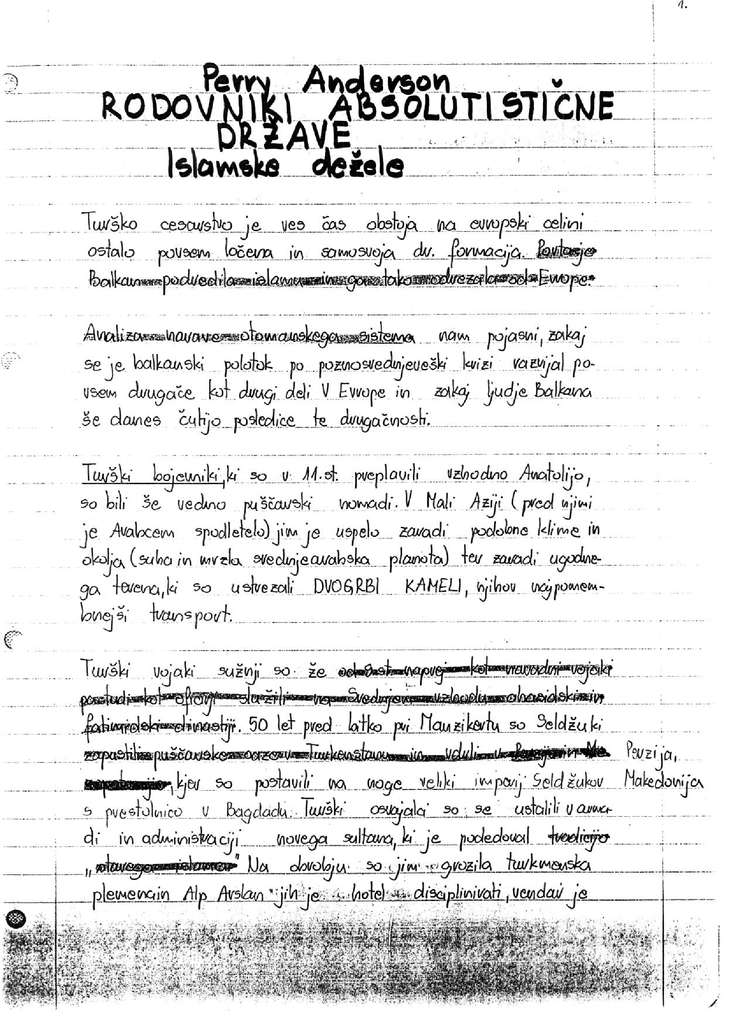 1.
Perry Anderson
RODOVNIKI ABSOLUTISTIČNE
DRŽAVE
Islamske dežele
Turško cesarstvo je ves čas obstoja na evropski celini
ostalo povsem ločena in samosvoja dr. formacija.
Balkan podvedila islamu in ga tako odrezala od Evrope.
Analiza narave otomanskega sistema nam pojasni, zakaj
se je balkanski polotok po poznosrednjeveški krizi razvijal po-
vsem drugače kot drugi deli V Evrope in zakaj ljudje Balkana
še danes čutijo posledice te drugačnosti.
Turški bojevniki, ki so v 11.st. preplavili vzhodno Anatolijo,
so bili še vedno puščavski nomadi. V Mali Aziji (pred njimi
je Arabcem spodletelo) jim je uspelo zaradi podobne klime in
okolja (suha in mrzla srednjearabska planota) ter zaradi ugodne-
ga terena, ki so ustrezali DVOGRBI KAMELI, njihov najpomem-
bnejši transport.
Turški vojaki sužnji so že
fatimidski dinastiji. 50 let pred bitko pri Manzikertu so Seldžuki
zapustili puščavsko v Turkestanu in vdrli v Perzijo,
kjer so postavili na noge veliki imperij Seldžukov Makedonija
s prestolnico v Bagdadu. Turški osvajalci so se ustalili v arma-
di in administraciji novega sultana, ki je podedoval tradicijo
" starega islama" Na obrobju so jim grozila turkmenska
plemena in Alp Arslan jih je hotel disciplinirati, vendar je